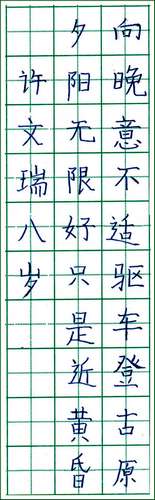 向晚意不适驱车登古原
夕阳无限好只是近黄昏
许文瑞八岁